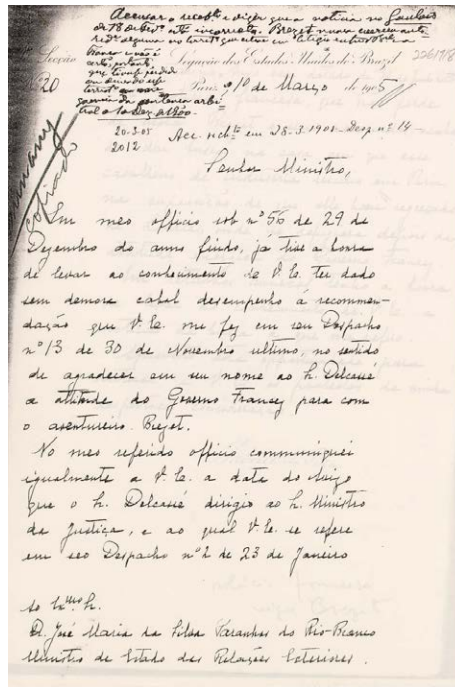 Accusar o receb.to e dizer que a noticia no Gaulois
de 18 de Fev.o está incorrecta. Brezet nunca exerceu auto-
ridade alguma no territ
Secção Legação dos Estados Unidos do Brazil 2261918
franco e não é
certo, portanto,
N 20 Paris 1º de Março de 1905
que tivesse perdido
territ
da sentença arbi-
tral de 1o Dez. de 1900.
20.3.05 Acc. rec em 28.3.1905 Desp. nº 14
2012
Senhor Ministro,
Em meo officio sob nº 56 de 29 de
Dezembro do anno findo, já tive a honra
de levar ao conhecimento de V. Ex. ter dado
sem demora cabal desempenho á recommen-
dação que V. Ex. me fez em seu Despacho
nº 13 de 30 de Novembro ultimo, no sentido
de agradecer em seu nome ao Sr. Delcassé
a attitude do Governo Francez para com
o aventureiro Brezet.
No meo referido officio communiquei
igualmente a V. Ex. a data do Aviso
que o Sr. Delcassé dirigio ao Sr. Ministro
da Justiça, e ao qual V. Ex. se refere
em seo Despacho nº 2 de 23 de Janeiro
Ao Exmo Sr.
D. José Maria da Silva Paranhos do Rio-Branco
Ministro de Estado das Relações Exteriores.